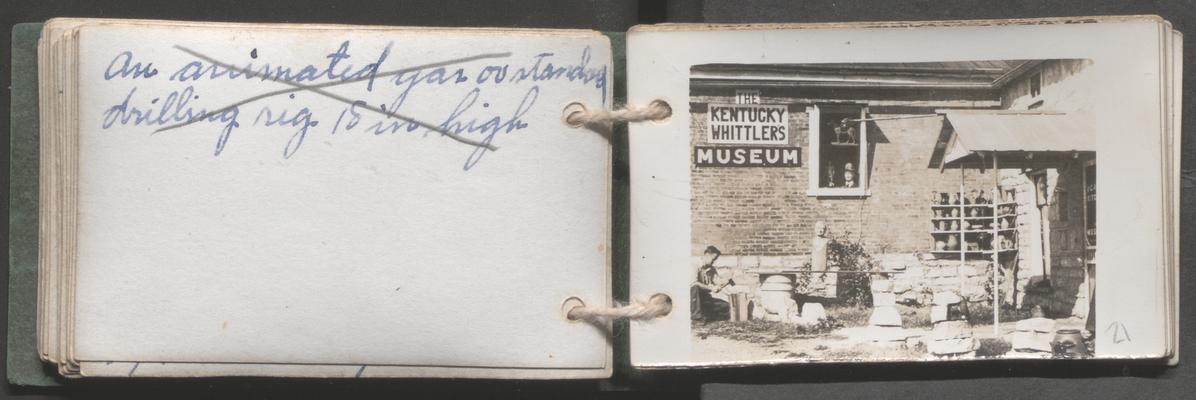 An animated gas oo standing
drilling rig 18 in high
THE
KENTUCKY
WHITTLERS
MUSEUM
21